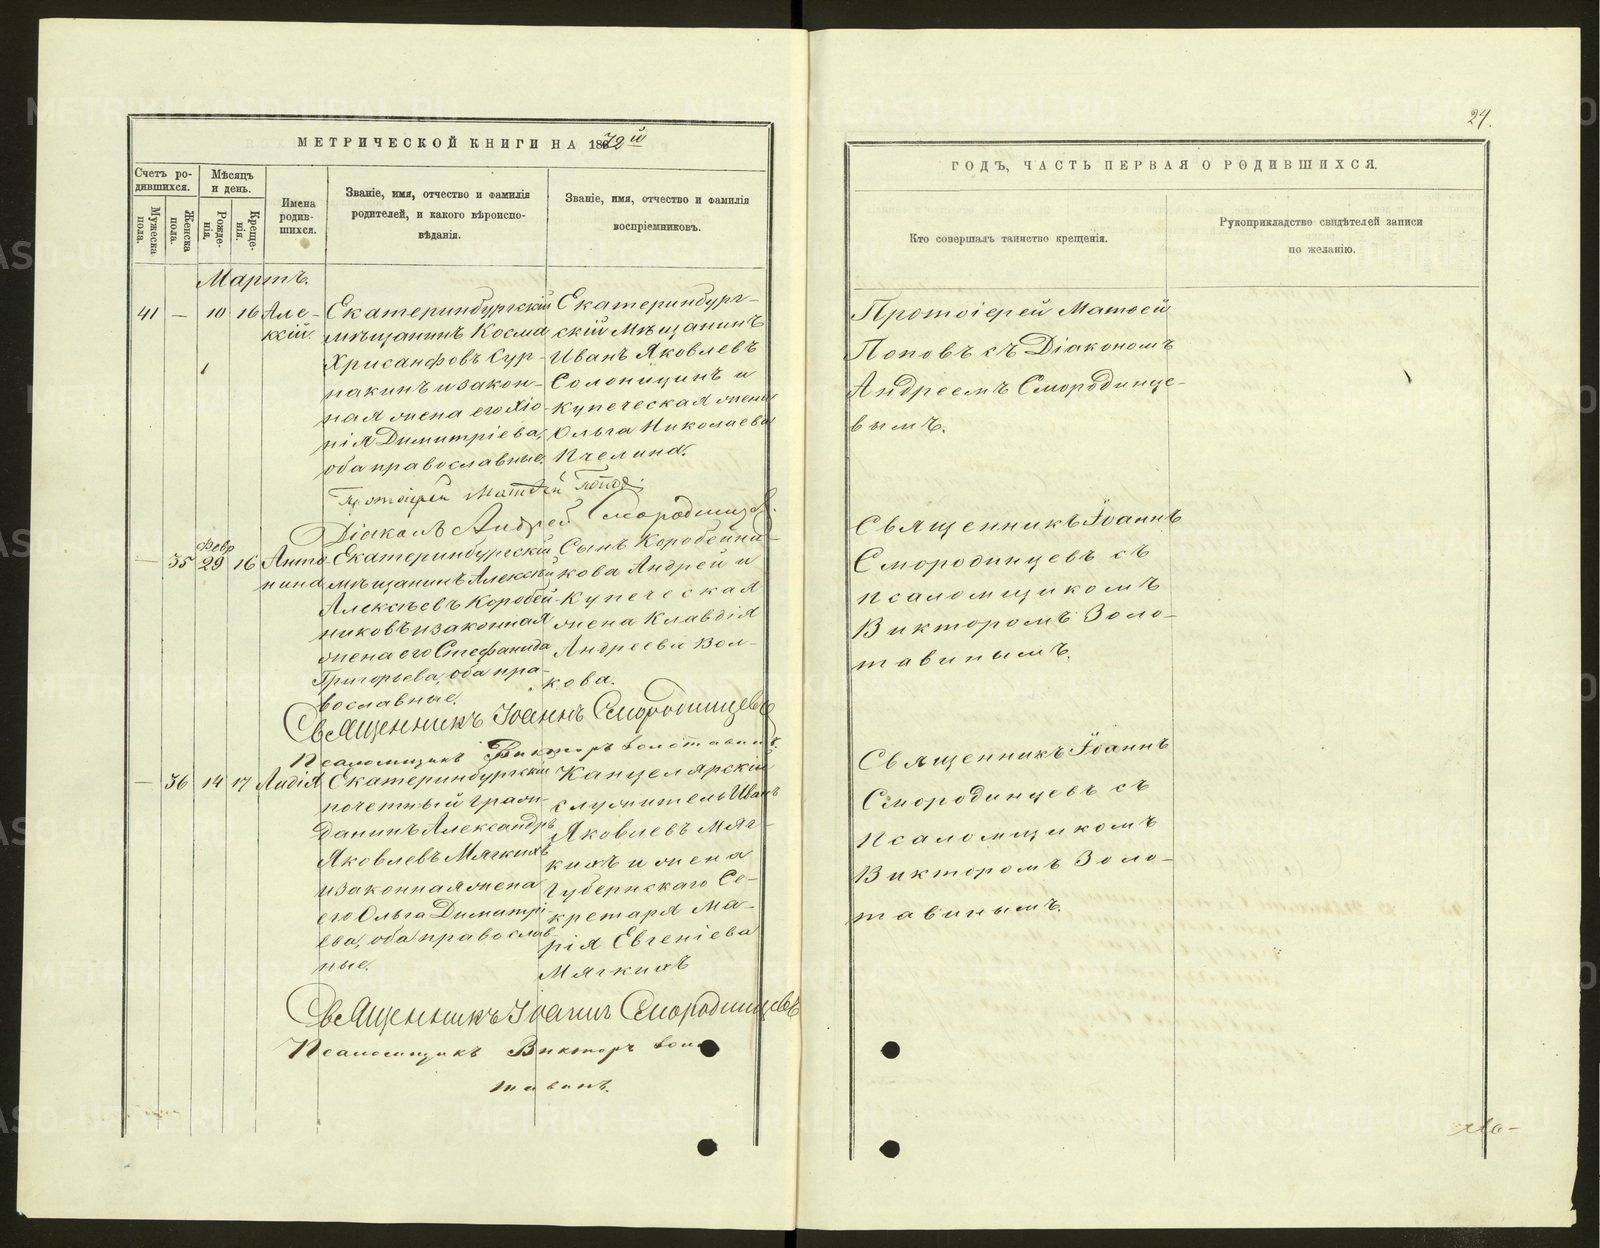 МЕТРИЧЕСКОЙ КНИГИ НА 1872й
Счетъ ро-
дившихся.
Мѣсяцъ
и день.
Мужеска
пола.
Женска
пола.
Рожде-
нія.
Креще-
нія.
Имена
родив-
шихся.
Званіе, имя, отчество и фамилія
родителей, и какого вѣроиспо-
вѣданія.
Званіе, имя, отчество и фамилія
воспріемниковъ.
Мартъ.
41 — 10 16
Але-
ксій.
Екатеринбургскій
мѣщанинъ Косма
Хрисанфовъ Сур-
накинъ и закон-
ная жена его Хіо-
нія Димитріева,
оба православные.
Екатеринбург-
скій мѣщанинъ
Иванъ Яковлевъ
Солоницинъ и
купеческая жена
Ольга Николаева
Пчелина.
Протоіерей Матѳей Поповъ.
Діаконъ Андрей Смородинцевъ.
— 35 Февр 29 16
Анто-
нина
Екатеринбургскій
мѣщанинъ Алексѣй
Алексѣевъ Коробей-
никовъ и законная
жена его Стефанида
Григорьева, оба пра-
вославные.
Сынъ Коробейни-
кова Андрей и
купеческая
жена Клавдія
Андреева Вол-
кова.
Священникъ Іоаннъ Смородинцевъ
Псаломщикъ Викторъ Золотавинъ.
— 36 14 17
Лидія
Екатеринбургскій
почетный граж-
данинъ Александръ
Яковлевъ Мягкихъ
и законная жена
его Ольга Димитрі-
ева, оба православ-
ные.
Канцелярскій
служитель Иванъ
Яковлевъ Мяг-
кихъ и жена
Губернскаго Се-
кретаря Ма-
рія Евгеніева
Мягкихъ
Священникъ Іоаннъ Смородинцевъ
Псаломщикъ Викторъ Золо-
тавинъ.
24.
ГОДЪ, ЧАСТЬ ПЕРВАЯ О РОДИВШИХСЯ.
Кто совершалъ таинство крещенія.
Рукоприкладство свидѣтелей записи
по желанію.
Протоіерей Матѳей
Поповъ съ Діакономъ
Андреемъ Смородинце-
вымъ.
Священникъ Іоаннъ
Смородинцевъ съ
псаломщикомъ
Викторомъ Золо-
тавинымъ.
Священникъ Іоаннъ
Смородинцевъ съ
псаломщикомъ
Викторомъ Золо-
тавинымъ.
METRIKI.GASO-URAL.RU